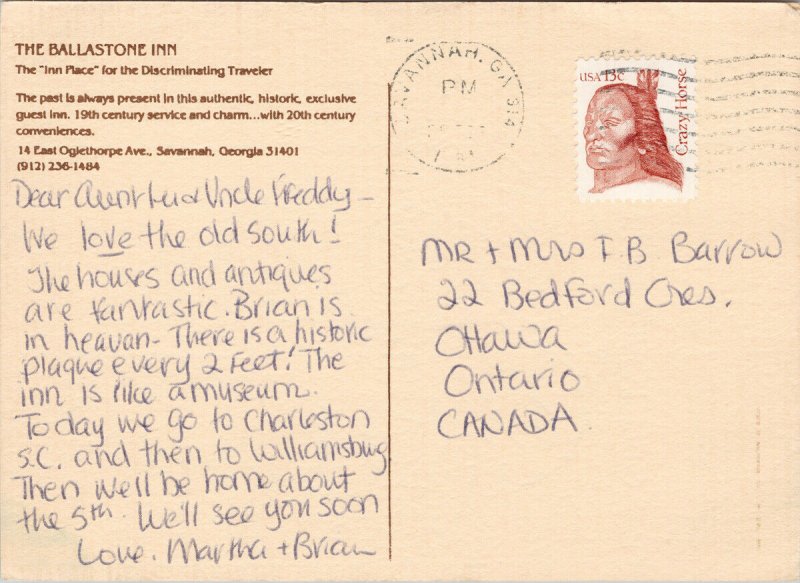 THE BALLASTONE INN
The "Inn Place" for the Discriminating Traveler
The past is always present in this authentic, historic, exclusive
guest inn. 19th century service and charm...with 20th century
conveniences.
14 East Oglethorpe Ave., Savannah, Georgia 31401
(912) 236-1484
Dear Aunt Lu & Uncle Freddy -
We love the old south!
The houses and antiques
are fantastic. Brian is
in heavan - There is a historic
plaque every 2 feet! The
inn is like a museum.
Today we go to Charleston
S.C. and then to Williamsburg
Then we'll be home about
the 5th. We'll see you soon
Love. Martha + Brian
SAVANNAH, GA 314
PM
USA 13c
Crazy Horse
MR + Mrs F.B. Barrow
22 Bedford Cres.
Ottawa
Ontario
CANADA.